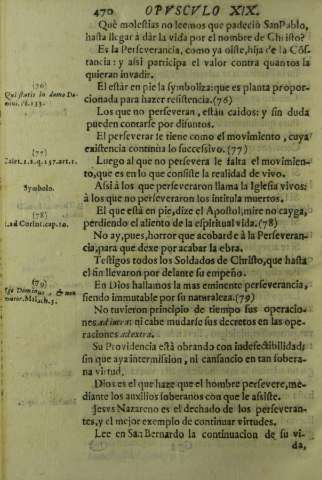 470 OPVSCVLO XIX.
Què molestias no leemos que padeciò San Pablo,
hasta llegar à dàr la vida por el nombre de Christo?
Es la Perseverancia, como ya oìste, hija de la Cõs-
tancia: y assi participa el valor contra quantos la
quieran invadir.
(76)
Qui statis in domo Do-
mini. Ps. 133.
El estàr en pie la symboliza: que es planta propor-
cionada para hazer resistencia. (76)
Los que no perseveran, estàn caìdos: y sin duda
pueden contarse por difuntos.
El perseverar se tiene como el movimiento, cuya
existencia continùa lo successivo. (77)
(77)
Caiet. 2. 2. q. 137. art. 1.
Luego al que no persevera le falta el movimien-
to, que es en lo que consiste la realidad de vivo.
Symbolo.
Assi à los que perseveraron llama la Iglesia vivos:
à los que no perseveraron los intitula muertos.
(78)
1. ad Corint. cap. 10.
El que està en pie, dize el Apostol, mire no cayga,
perdiendo el aliento de la espiritual vida. (78)
No ay, pues, horror que acobarde à la Perseveran-
cia, para que dexe por acabar la obra.
Testigos todos los Soldados de Christo, que hasta
el fin llevaron por delante su empeño.
(79)
Ego Dominus, & non
mutor. Malach. 3.
En Dios hallamos la mas eminente perseverancia,
siendo immutable por su naturaleza. (79)
No tuvieron principio de tiempo sus operacio-
nes ad intra: ni cabe mudarse sus decretos en las ope-
raciones ad extra.
Su Providencia està obrando con indefectibilidad;
sin que aya intermission, ni cansancio en tan sobera-
na virtud.
Dios es el que haze que el hombre persevere, me-
diante los auxilios soberanos con que le assiste.
Jesvs Nazareno es el dechado de los perseveran-
tes, y el mejor exemplo de continuar virtudes.
Lee en San Bernardo la continuacion de su vi-
da,